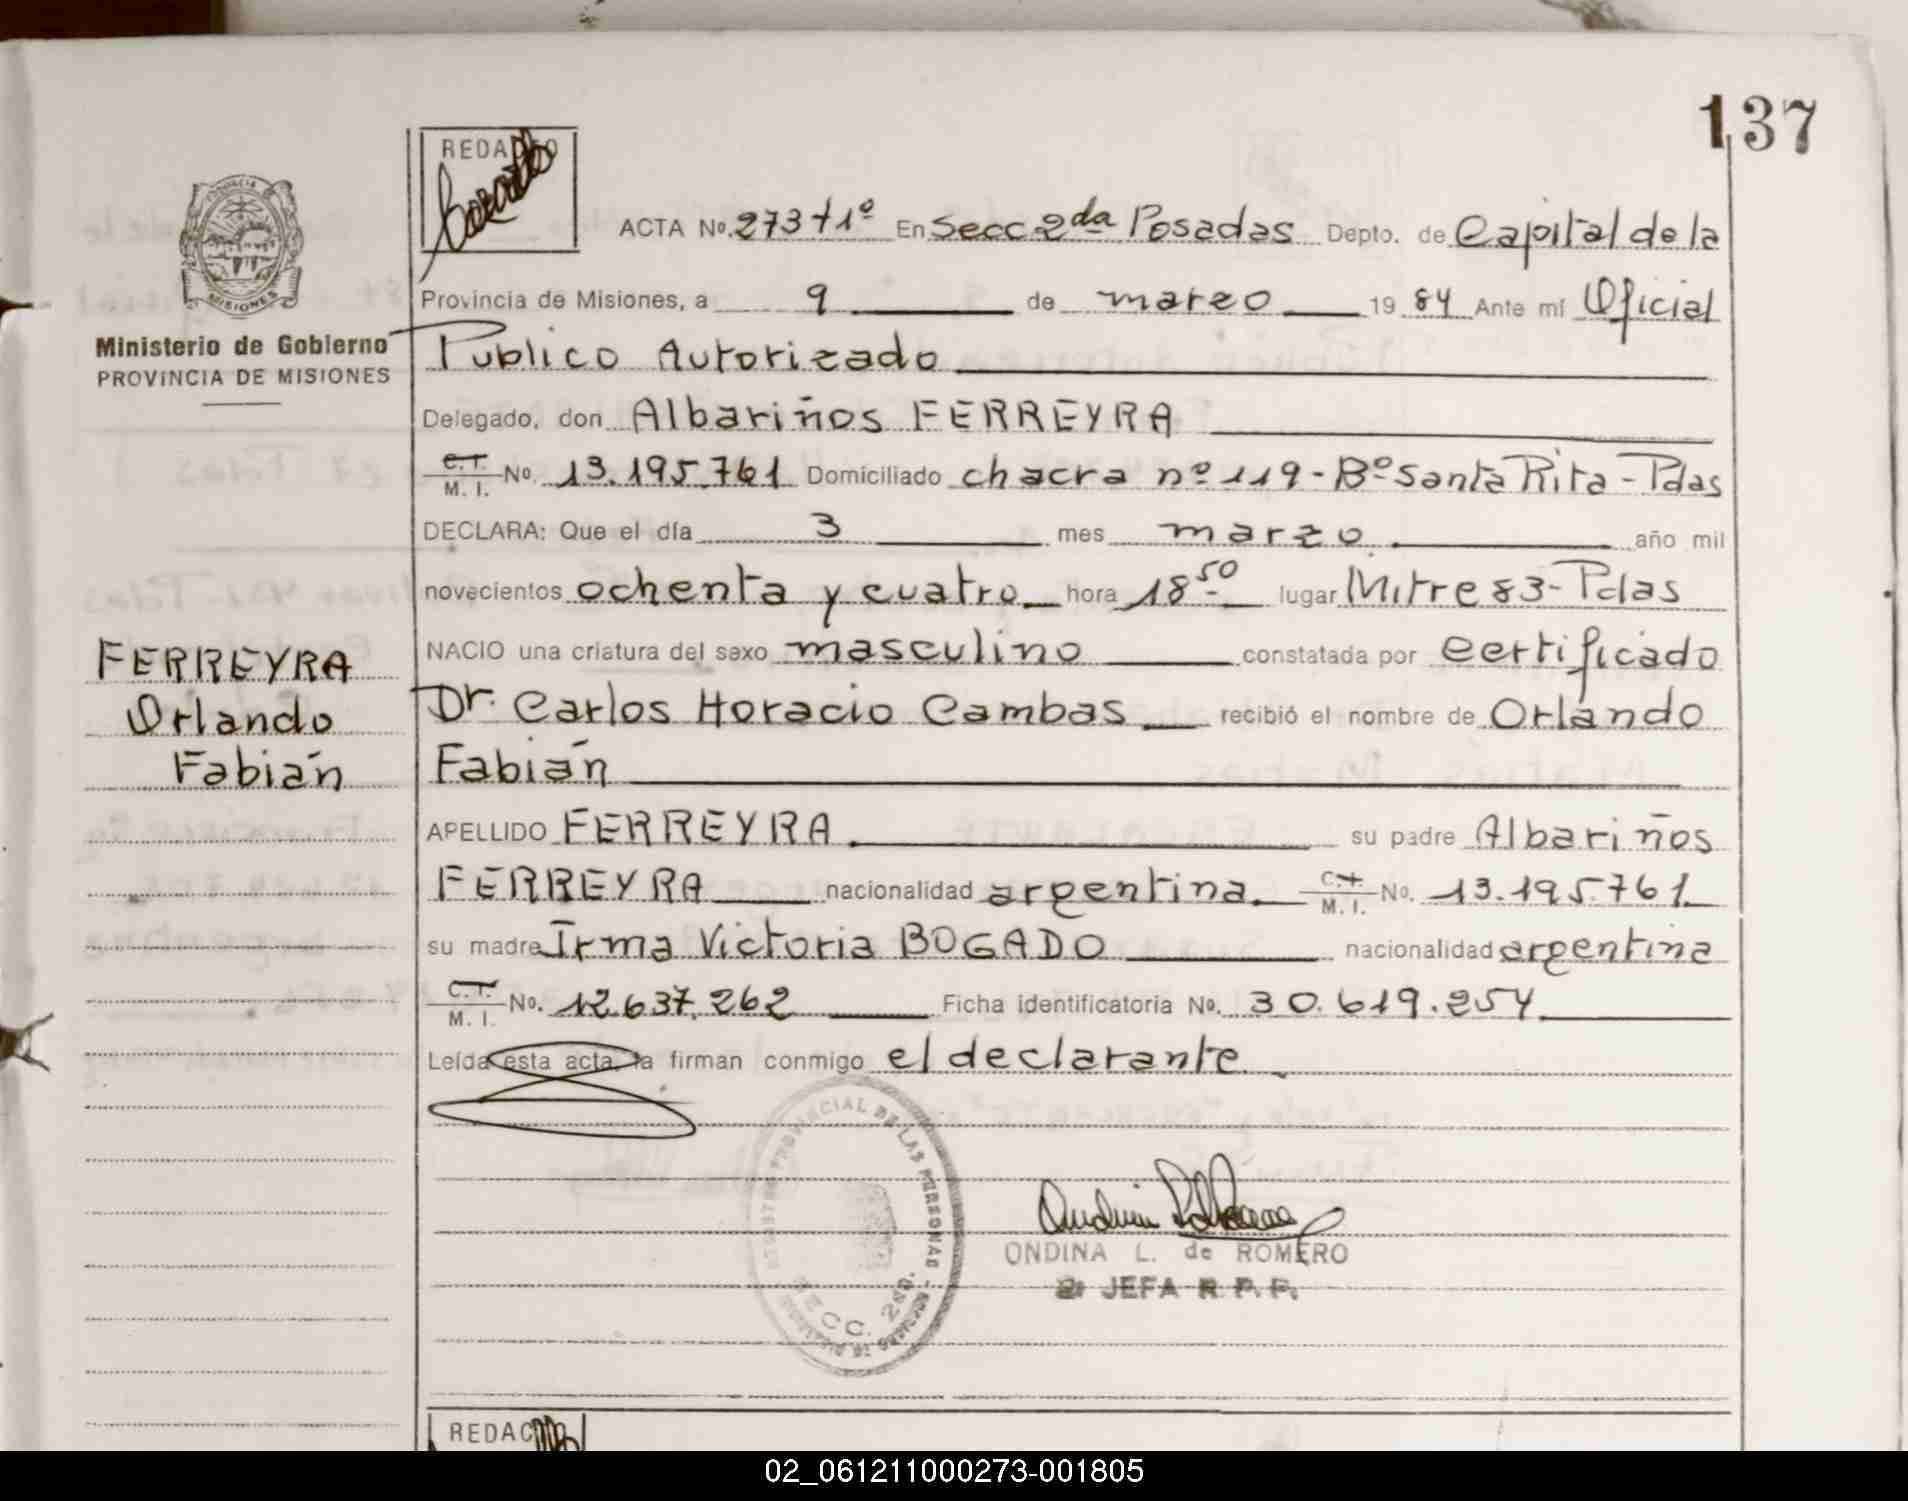 137
PROVINCIA DE
MISIONES
Ministerio de Gobierno
PROVINCIA DE MISIONES
FERREYRA
Orlando
Fabián
REDACTO
ACTA No. 273 t 1º En Secc 2da Posadas Depto. de Capital de la
Provincia de Misiones, a 9 de marzo 19 84 Ante mí Oficial
Publico Autorizado
Delegado, don Albariños FERREYRA
C.I. M.I. No. 13.195.761 Domiciliado chacra nº 119 - Bº Santa Rita - Pdas
DECLARA: Que el día 3 mes marzo año mil
novecientos ochenta y cuatro hora 18 50 lugar Mitre 83 - Pdas
NACIO una criatura del sexo masculino constatada por certificado
Dr. Carlos Horacio Cambas recibió el nombre de Orlando
Fabián
APELLIDO FERREYRA su padre Albariños
FERREYRA nacionalidad argentina C.I. M.I. No. 13.195.761
su madre Irma Victoria BOGADO nacionalidad argentina
C.I. M.I. No. 12.637.262 Ficha identificatoria No. 30.619.254
Leída esta acta, la firman conmigo el declarante.
REGISTRO PROVINCIAL DE LAS PERSONAS
SECC. 2da.
ONDINA L. de ROMERO
JEFA R.P.P.
REDAC
02_061211000273-001805